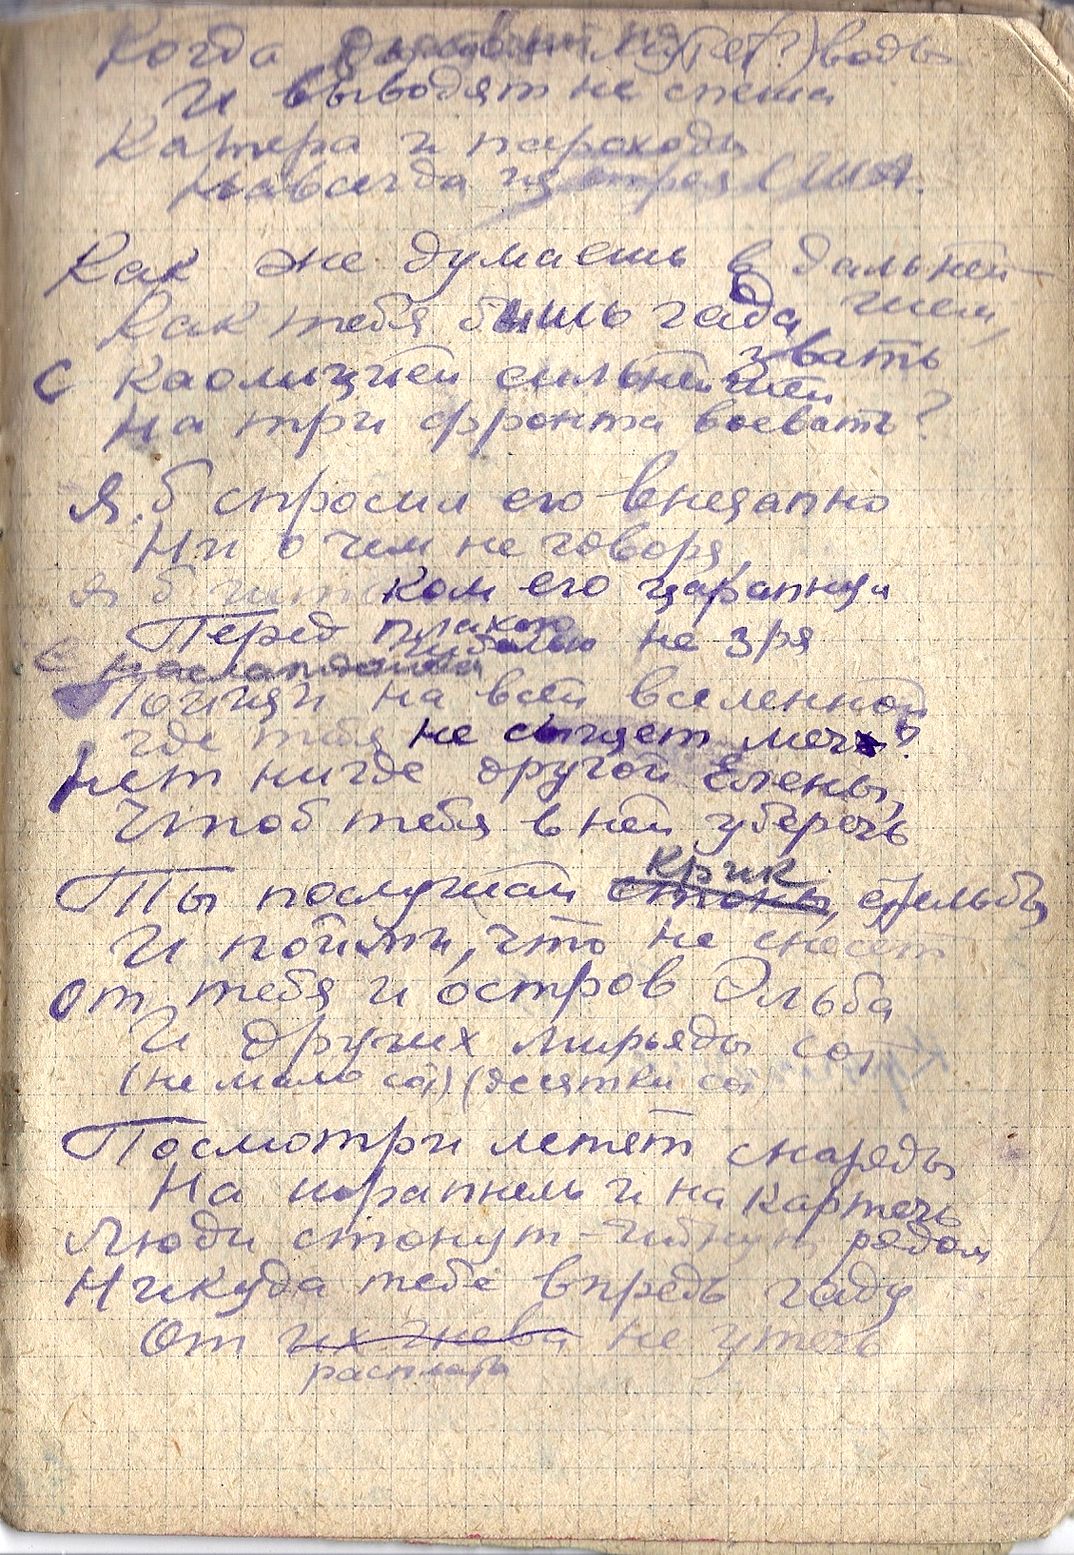 Когда воды
И выводят не спеша
Катера и пароходы
Навсегда из США.
Как же думаешь в дальней
шем,
Как тебя бишь гада
звать
С каолицией сильнейшей
На три фронта воевать?
Я б спросил его внезапно
Ни о чем не говоря,
Я б штыком его царапнул
Перед плахою не зря
гибелью
С
Пойми на всей вселенной
где тебя не сыщет меч?
Нет нигде другой Елены,
Чтоб тебя в ней уберечь
крик
Ты послушай стоны, стрельбы
И пойми, что не спасёт
От тебя и остров Эльба
И других мирьяды сот
(не мало сот) (десятки сот
Посмотри летят снаряды
На шрапнель и на картечь
Люди стонут - гибнут рядом
Никуда тебе впредь гаду
От их гнева не утечь
расплаты